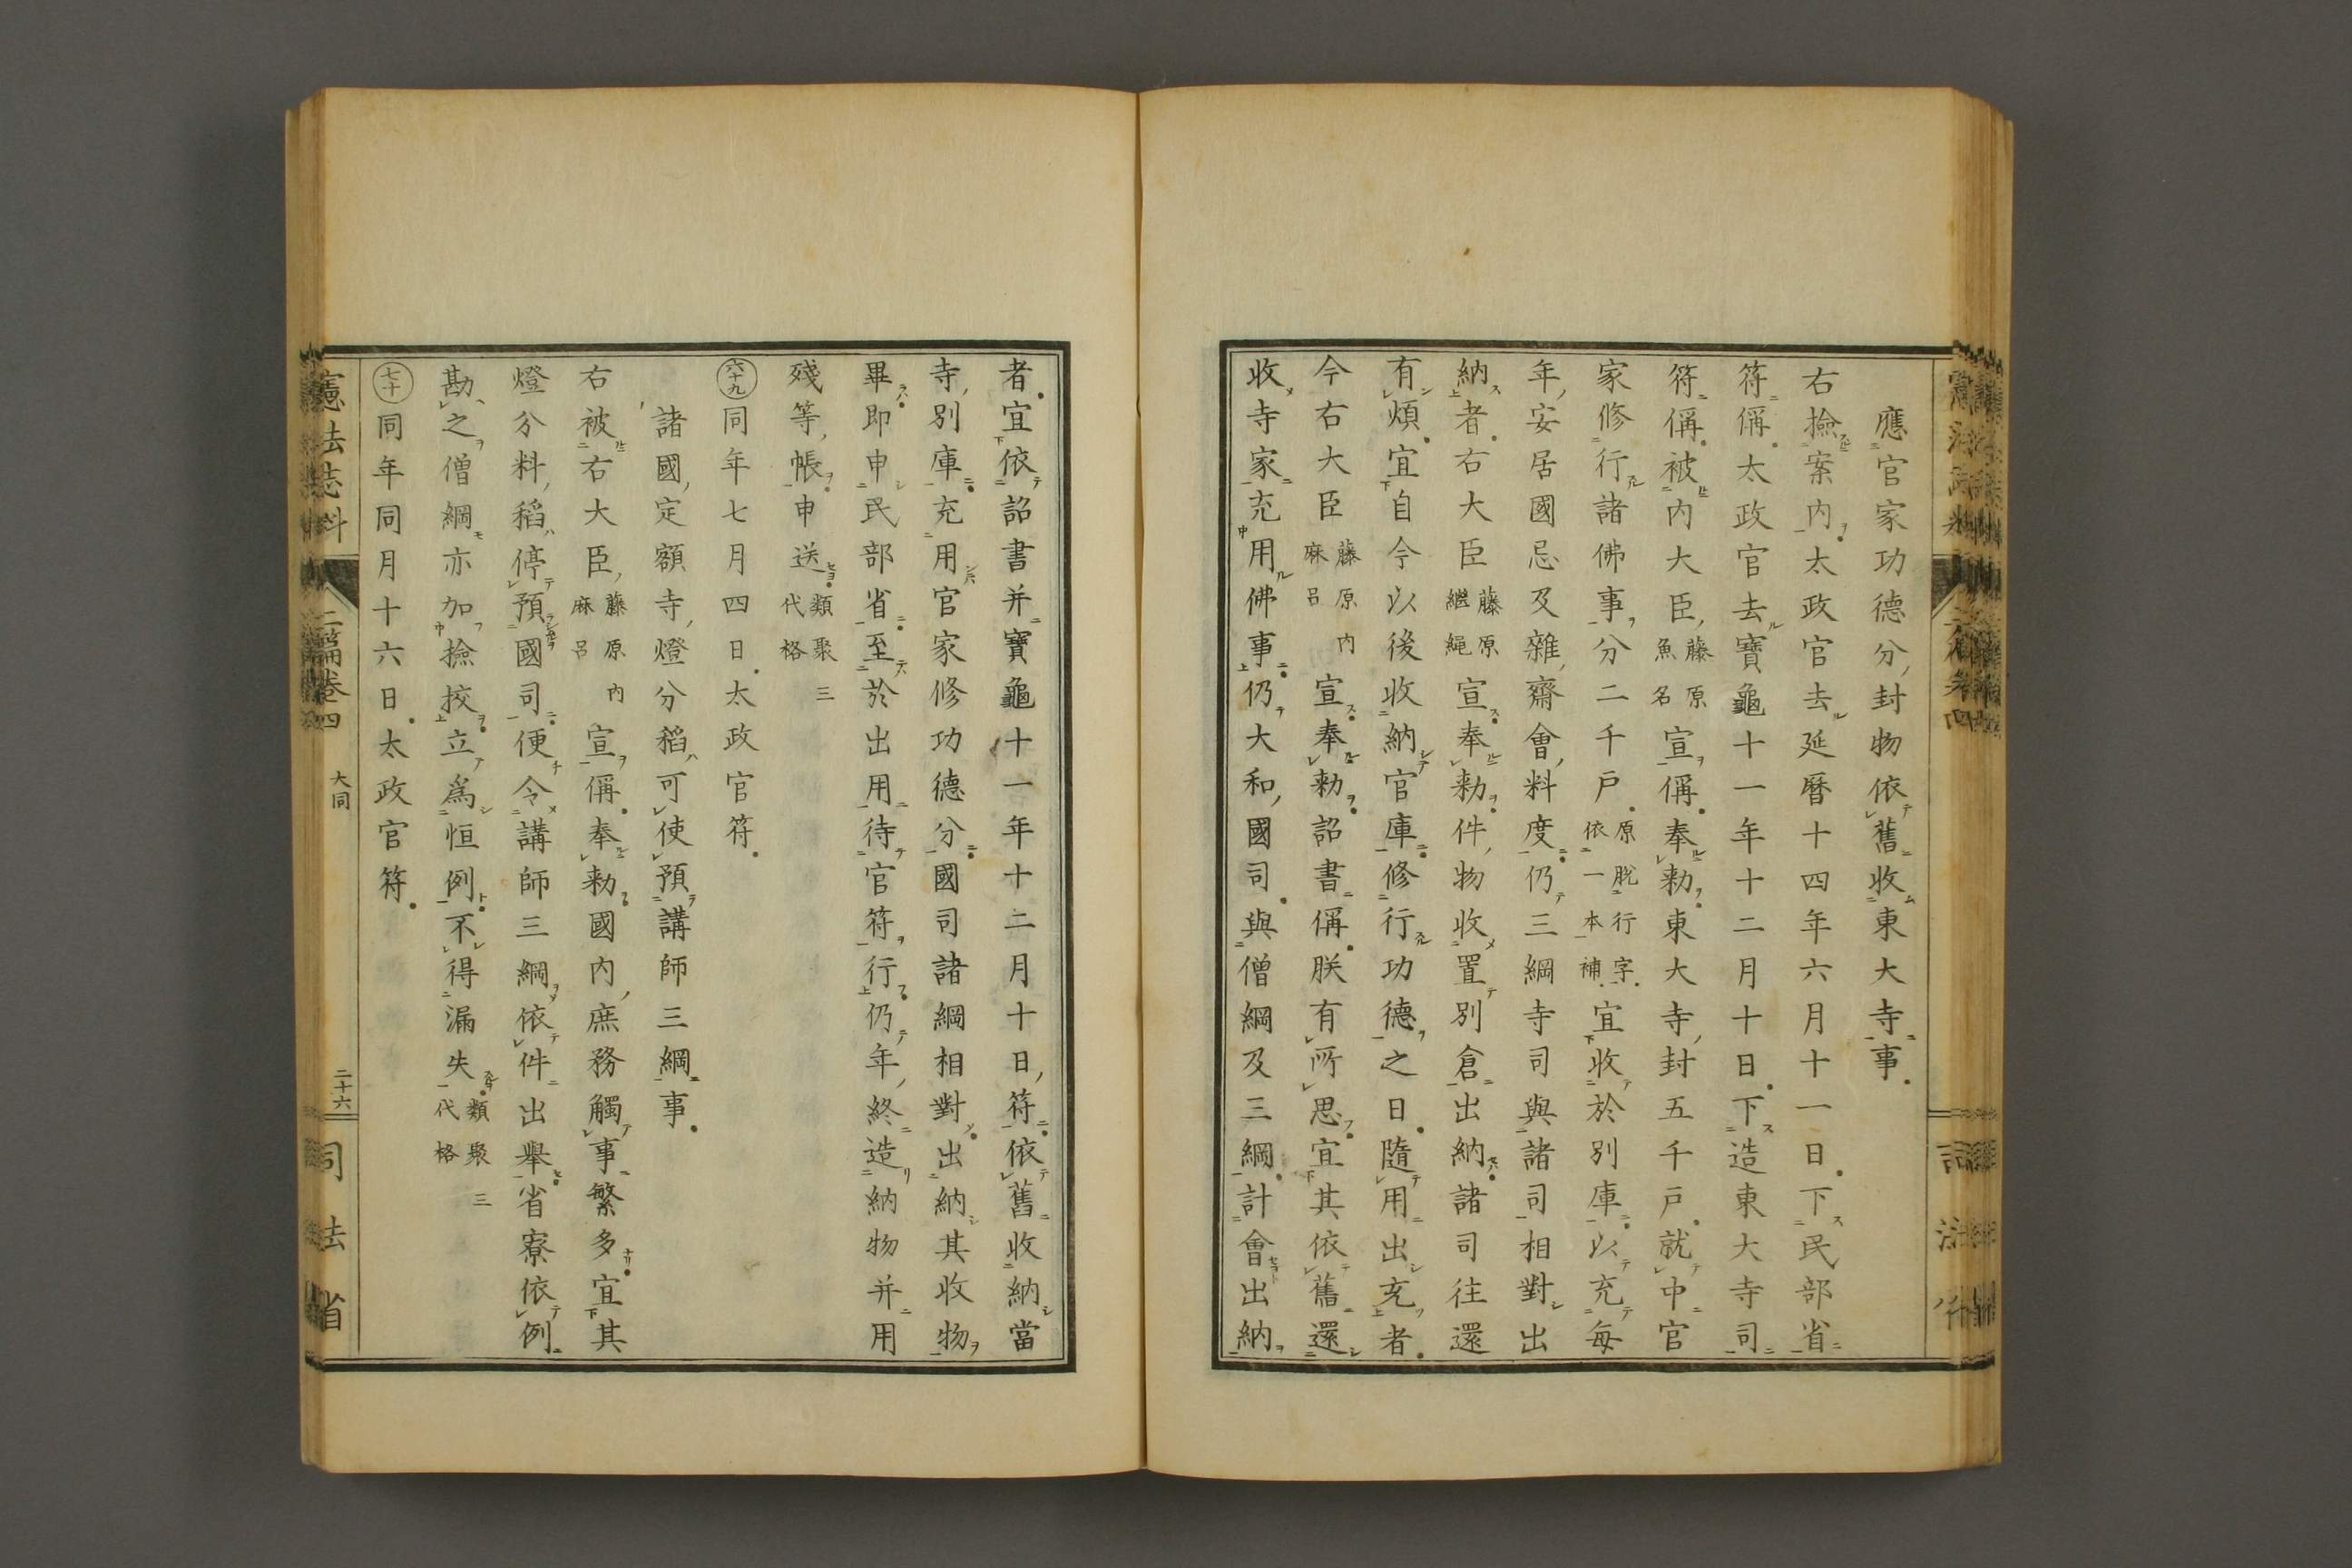 應官家功德分、封物依舊收東大寺事。
右撿案內。太政官去延曆十四年六月十一日。下民部省
符偁。太政官去寶龜十一年十二月十日。下造東大寺司
符偁。被內大臣、藤原魚名宣偁。奉勅。東大寺、封五千戶。就中官
家修行諸佛事、分二千戶。原脫行字。依一本補。宜收於別庫。以充每
年、安居國忌及雜、齋會、料度。仍三綱寺司與諸司相對出
納者。右大臣藤原繼繩宣。奉勅。件、物收置別倉。出納。諸司往還
有煩。宜自今以後收納官庫。修行功德之日。隨用出充者。
今右大臣藤原內麻呂宣。奉勅。詔書偁。朕有所思。宜其依舊還
收寺家充用佛事。仍大和、國司。與僧綱及三綱。計會出納
者。宜依詔書并寶龜十一年十二月十日、符。依舊收納當
寺、別庫。充用官家修功德分。國司諸綱相對。出納其收物
畢。即申民部省。至於出用待官符行。仍年、終造納物并用
殘等、帳。申送。類聚三代格
六十九 同年七月四日。太政官符。
諸國、定額寺、燈分稻、可使預講師三綱事。
右被右大臣、藤原內麻呂宣偁。奉勅。國內、庶務觸事繁多。宜其
燈分料、稻停預國司。便令講師三綱依件出舉。省寮依例
勘之。僧綱亦加撿挍。立爲恒例。不得漏失。類聚三代格
七十 同年同月十六日。太政官符。
憲法志料 二篇卷四 大同 二十六 司法省